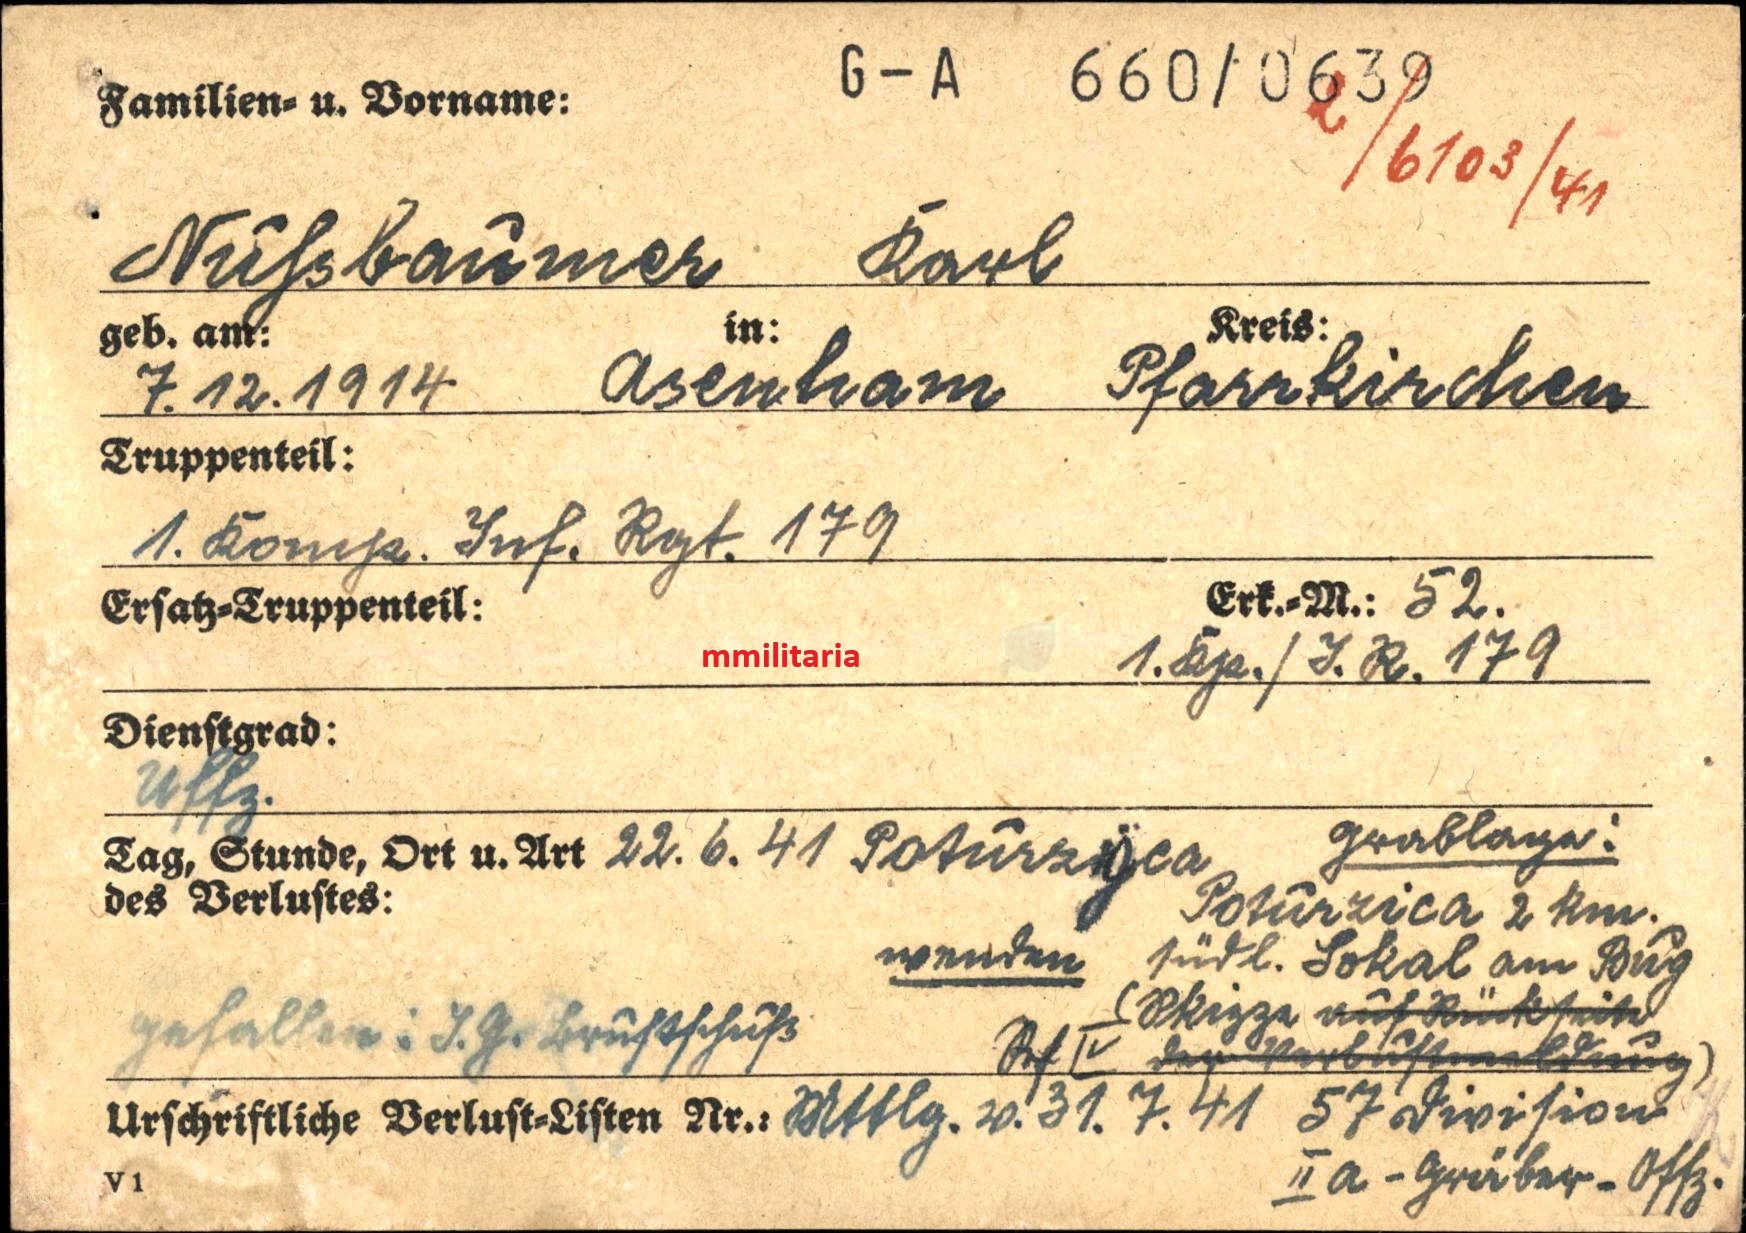 G-A 660/0639
Familien- u. Vorname:
2/6103/41
Nußbaumer Karl
geb. am: in: Kreis:
7.12.1914 Asenham Pfarrkirchen
Truppenteil:
1. Komp. Inf. Rgt. 179
Ersatz-Truppenteil: Erk.-M.: 52.
mmilitaria
1. Kp./ I. R. 179
Dienstgrad:
Uffz.
Tag, Stunde, Ort u. Art 22. 6. 41 Poturzyca Grablage:
des Verlustes:
Poturzica 2 km.
wenden südl. Sokal am Bug
(Skizze auf Rückseite
gefallen: I.G. Brustschuß
Ref IV der Verlustmeldung)
Urschriftliche Verlust-Listen Nr.: Mttlg. v. 31. 7. 41 57 Division
V 1
II a - Gräber - Offz.